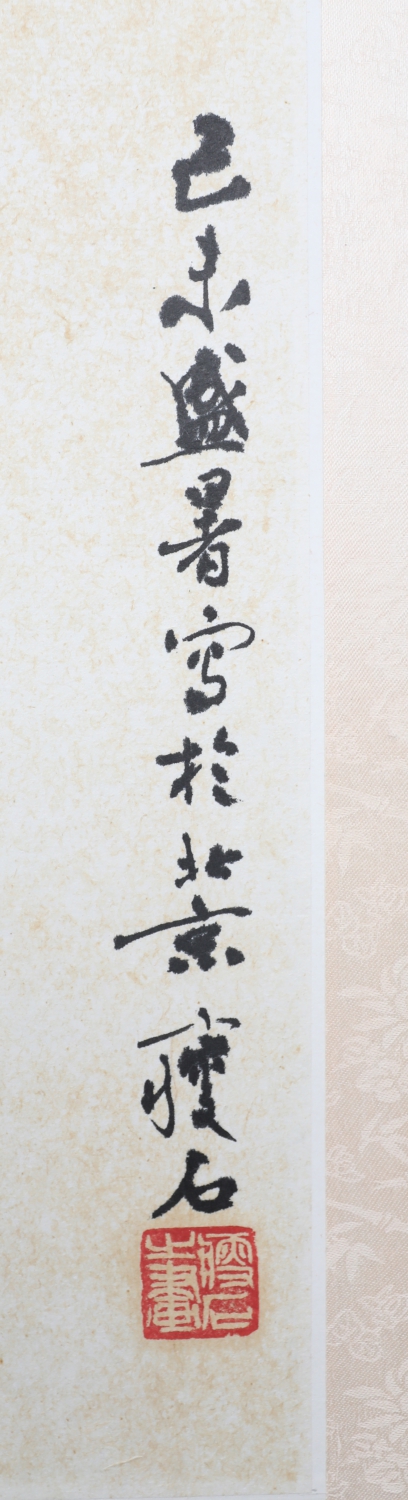 己未盛暑寫於北京瘦石
瘦石之畫